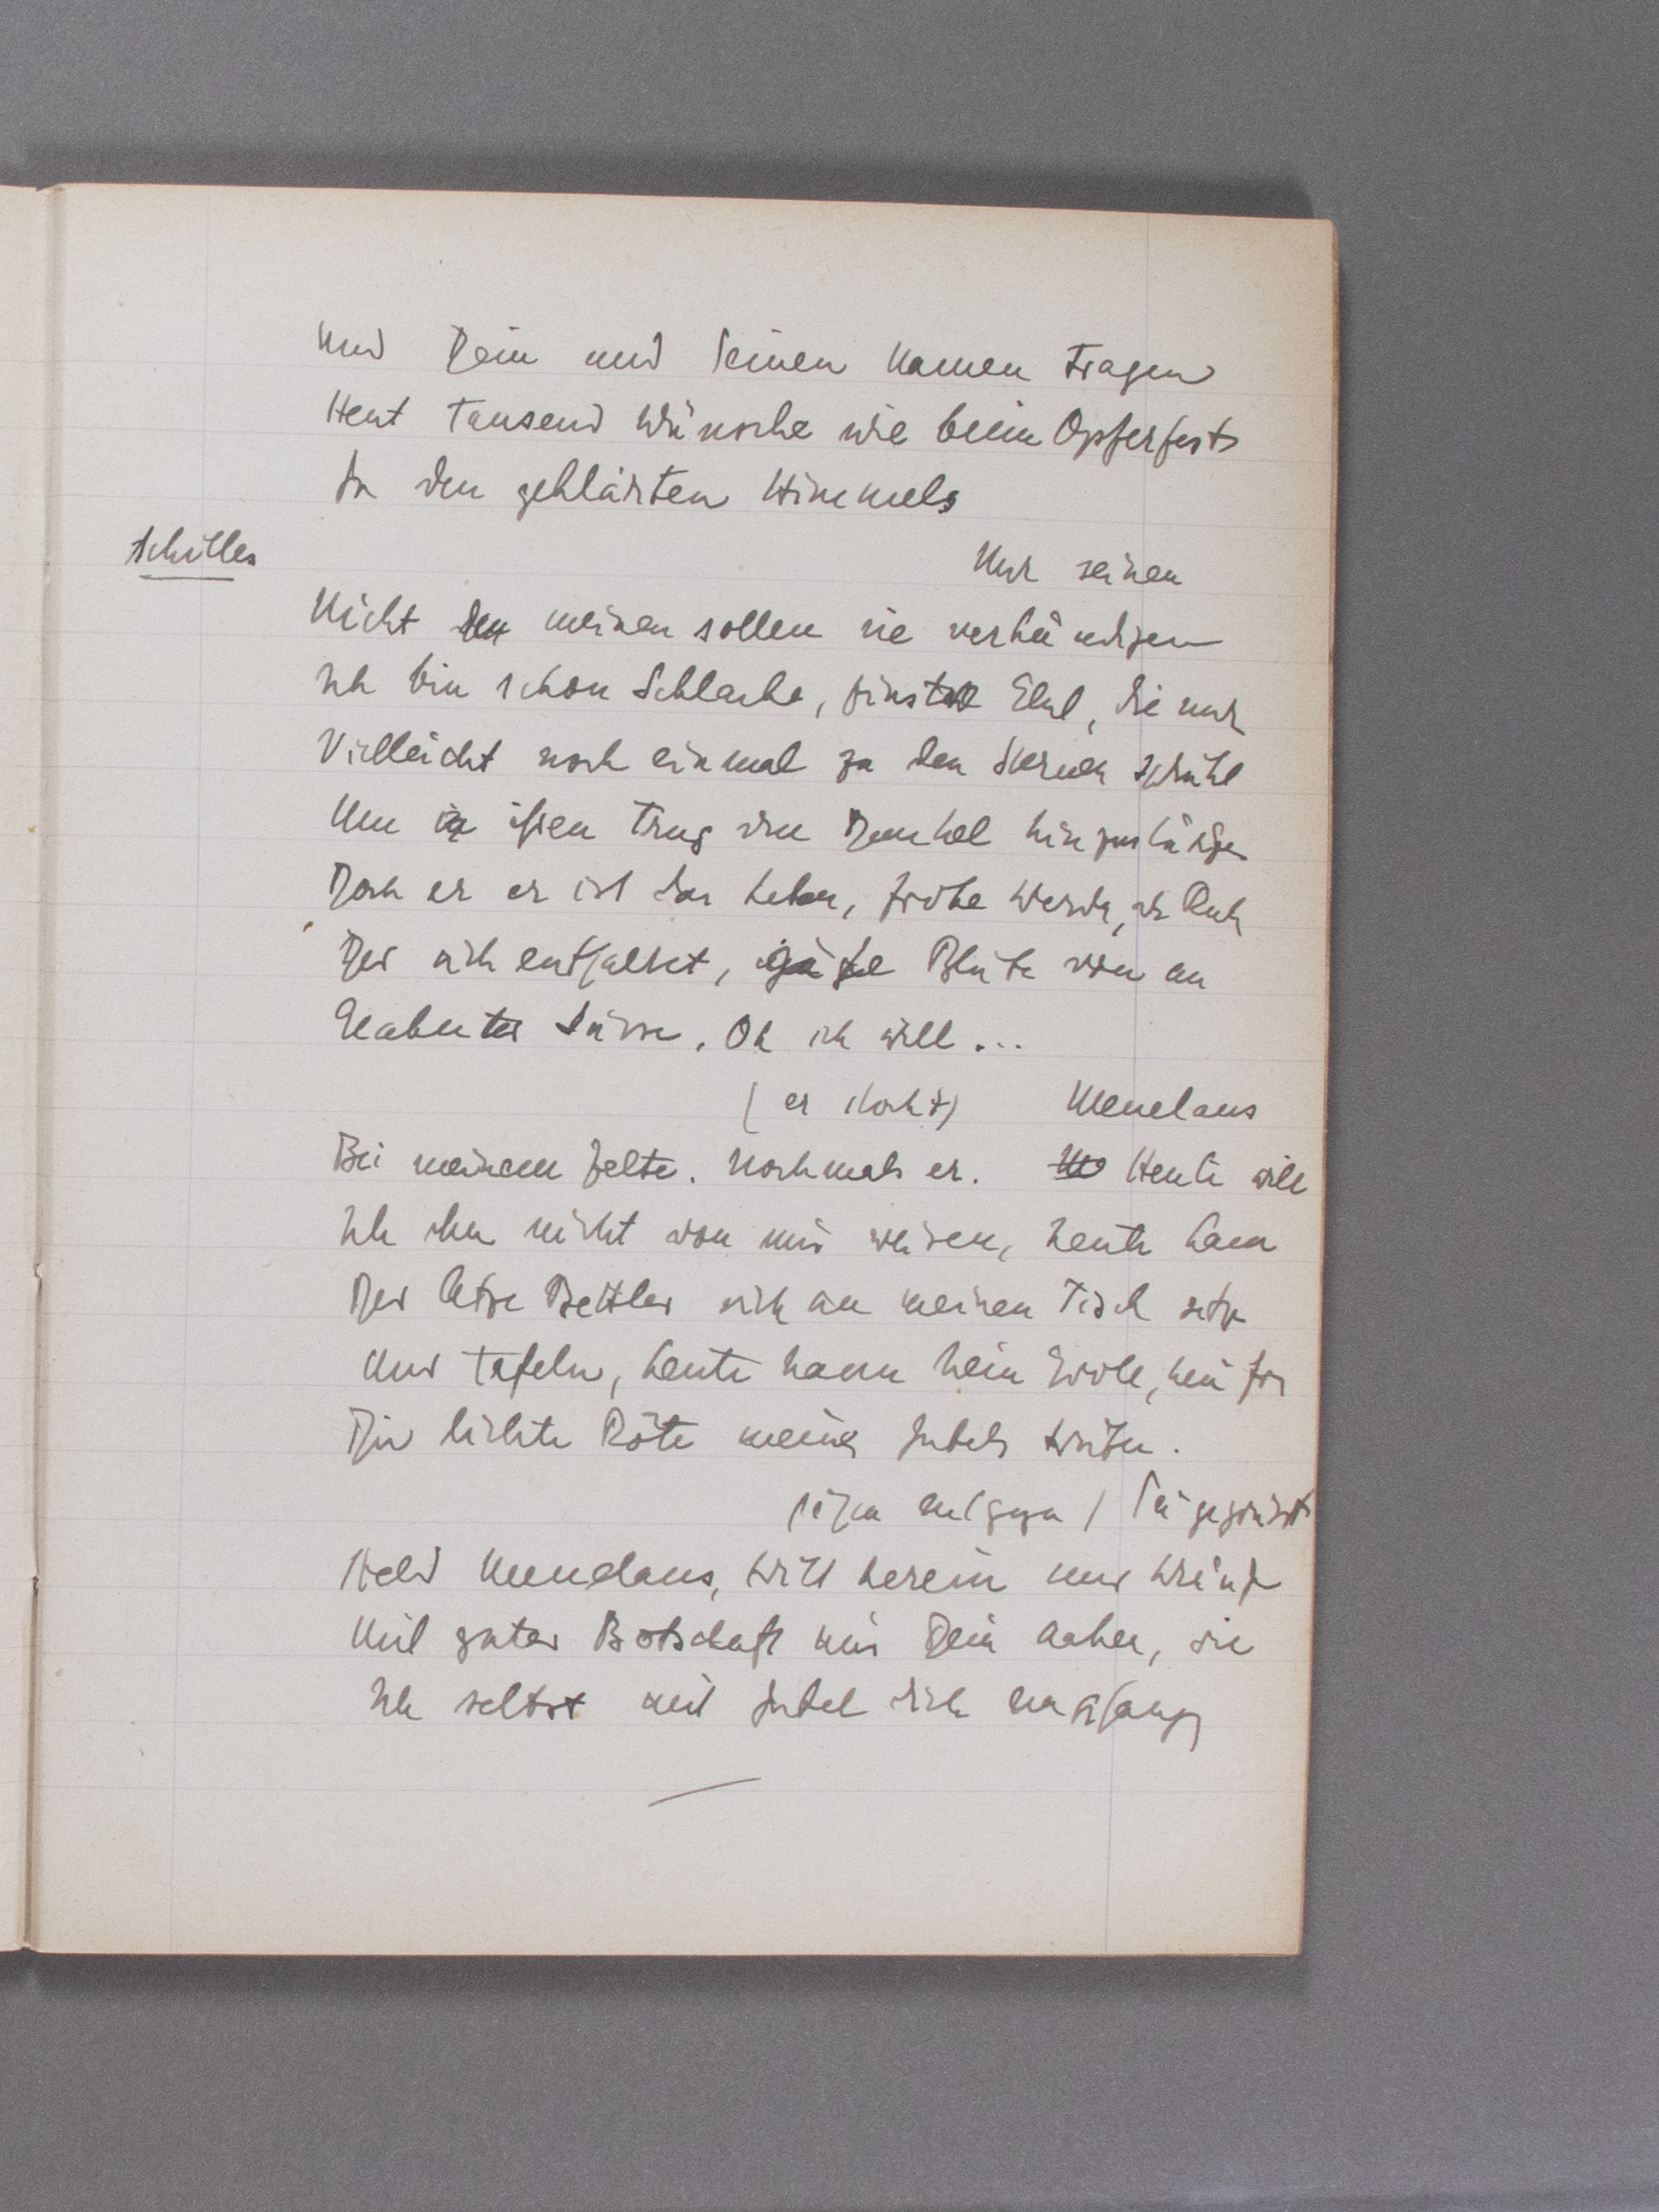 Und Dein und Seinen Namen tragen
Heut tausend Wünsche wie beim Opferfest
In den geklärten Himmel
Achilles
Nur seinen
Nicht den meinen sollen sie verkündigen
Ich bin schon Schlacke, die nur
Vielleicht noch einmal zu den Sternen sprüht
Um in ihren Trug von Dunkel
Doch er er ist das Leben, frohe Werden, der Ruh
Der sich entfaltet, Blüte von un
Geahnter Süsse. Oh ich will ...
(er stockt) Menelaus
Bei meinem Zelte. Nochmals er. Heute will
Ich ihn nicht von mir weisen, heute kann
Der letzte Bettler sich an meinen Tisch setzen
Und tafeln, heute kann kein Groll, kein
Die lichte Röte meines Jubels trüben.
(ihm entgegen) Sei gegrüsst
Held Menelaus, tritt herein und
Mit guter Botschaft mir Dein Nahen, wie
Ich selbst mit Jubel dich empfange